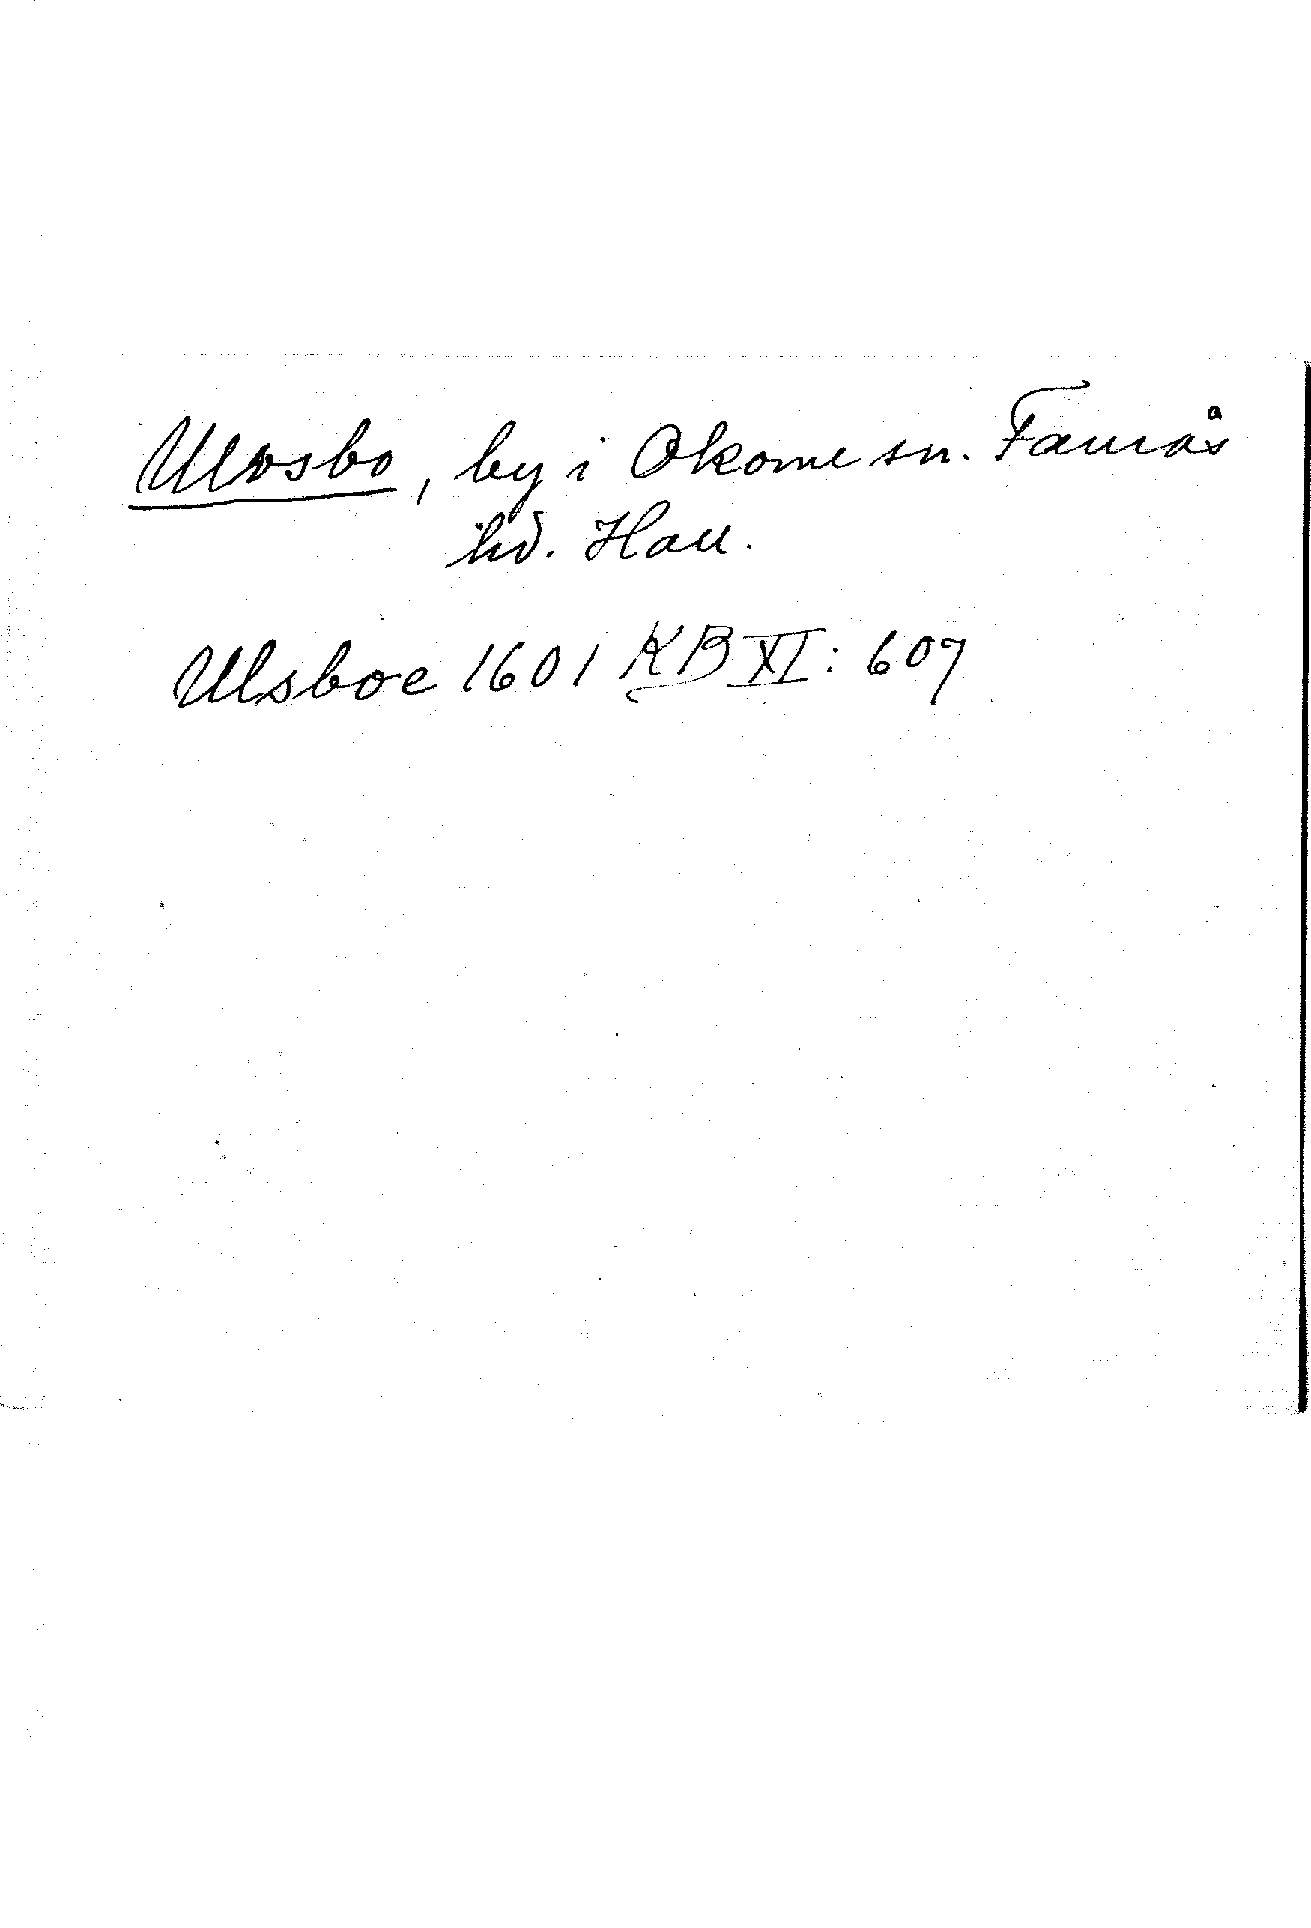 Ulvsbo, by i Okome sn. Faurås
hd. Hall.
Ulsboe 1601 KB XI: 607